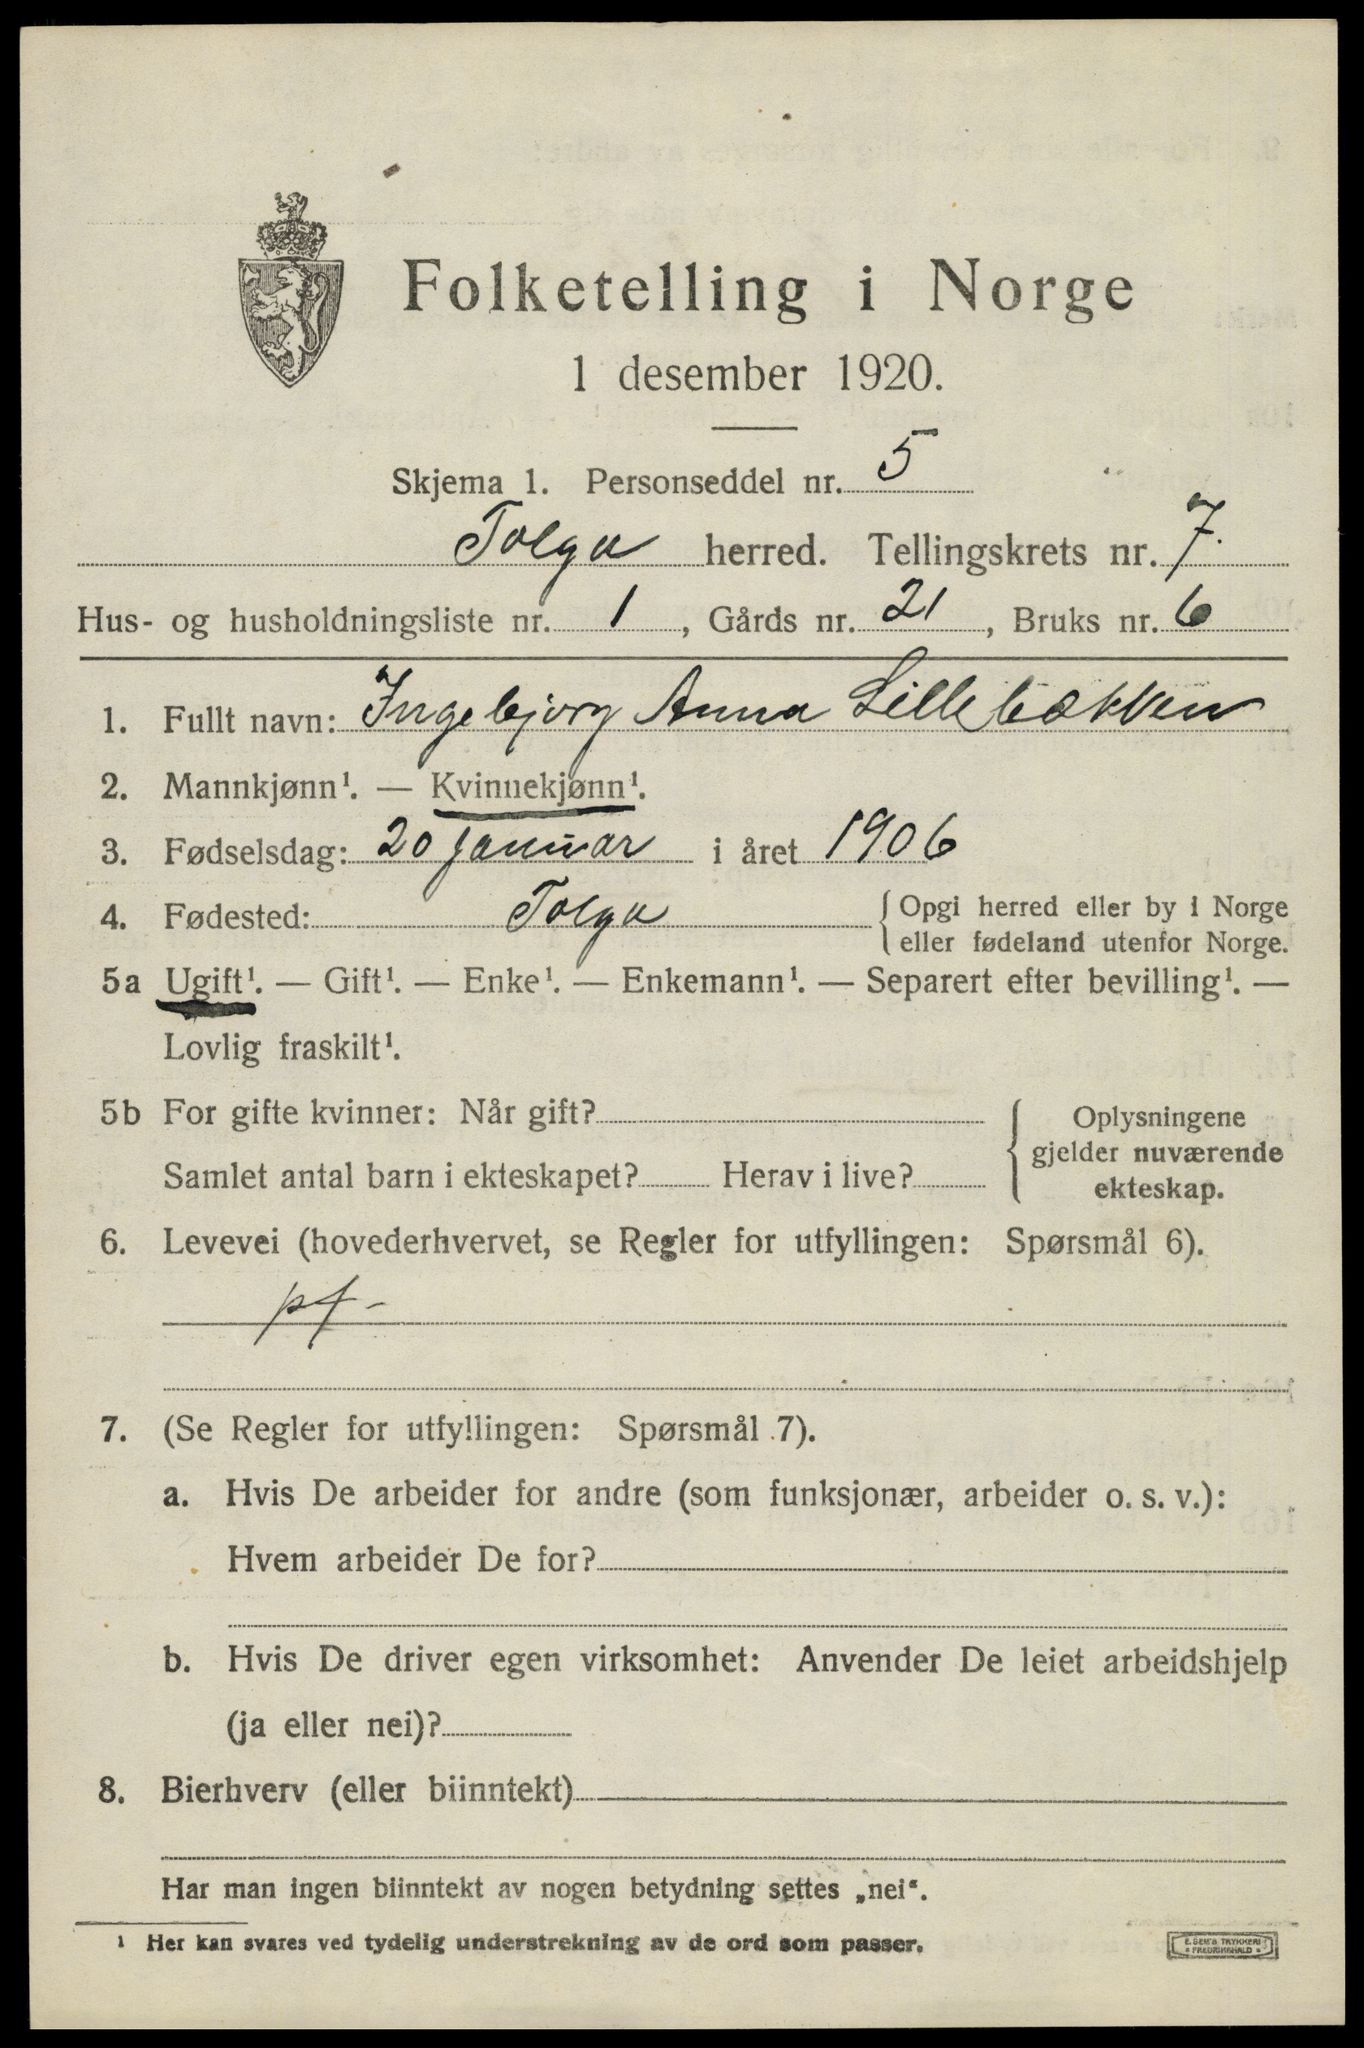 Folketelling i Norge
1 desember 1920.
Skjema 1. Personseddel nr. 5
Tolga herred. Tellingskrets nr. 7.
Hus- og husholdningsliste nr. 1, Gårds nr. 21, Bruks nr. 6
1. Fullt navn: Ingebjørg Anna Lillebækken
2. Mannkjønn¹. — Kvinnekjønn¹.
3. Fødselsdag: 20 januar i året 1906
4. Fødested: Tolga { Opgi herred eller by i Norge
eller fødeland utenfor Norge.
5a Ugift¹. — Gift¹. — Enke¹. — Enkemann¹. — Separert efter bevilling¹. —
Lovlig fraskilt¹.
5b For gifte kvinner: Når gift?
Samlet antal barn i ekteskapet? Herav i live?
Oplysningene
gjelder nuværende
ekteskap.
6. Levevei (hovederhvervet, se Regler for utfyllingen: Spørsmål 6).
pf-
7. (Se Regler for utfyllingen: Spørsmål 7).
a. Hvis De arbeider for andre (som funksjonær, arbeider o. s. v.):
Hvem arbeider De for?
b. Hvis De driver egen virksomhet: Anvender De leiet arbeidshjelp
(ja eller nei)?
8. Bierhverv (eller biinntekt)
Har man ingen biinntekt av nogen betydning settes „nei“.
¹ Her kan svares ved tydelig understrekning av de ord som passer.
E. SEM'S TRYKKERI
FREDRIKSHALD